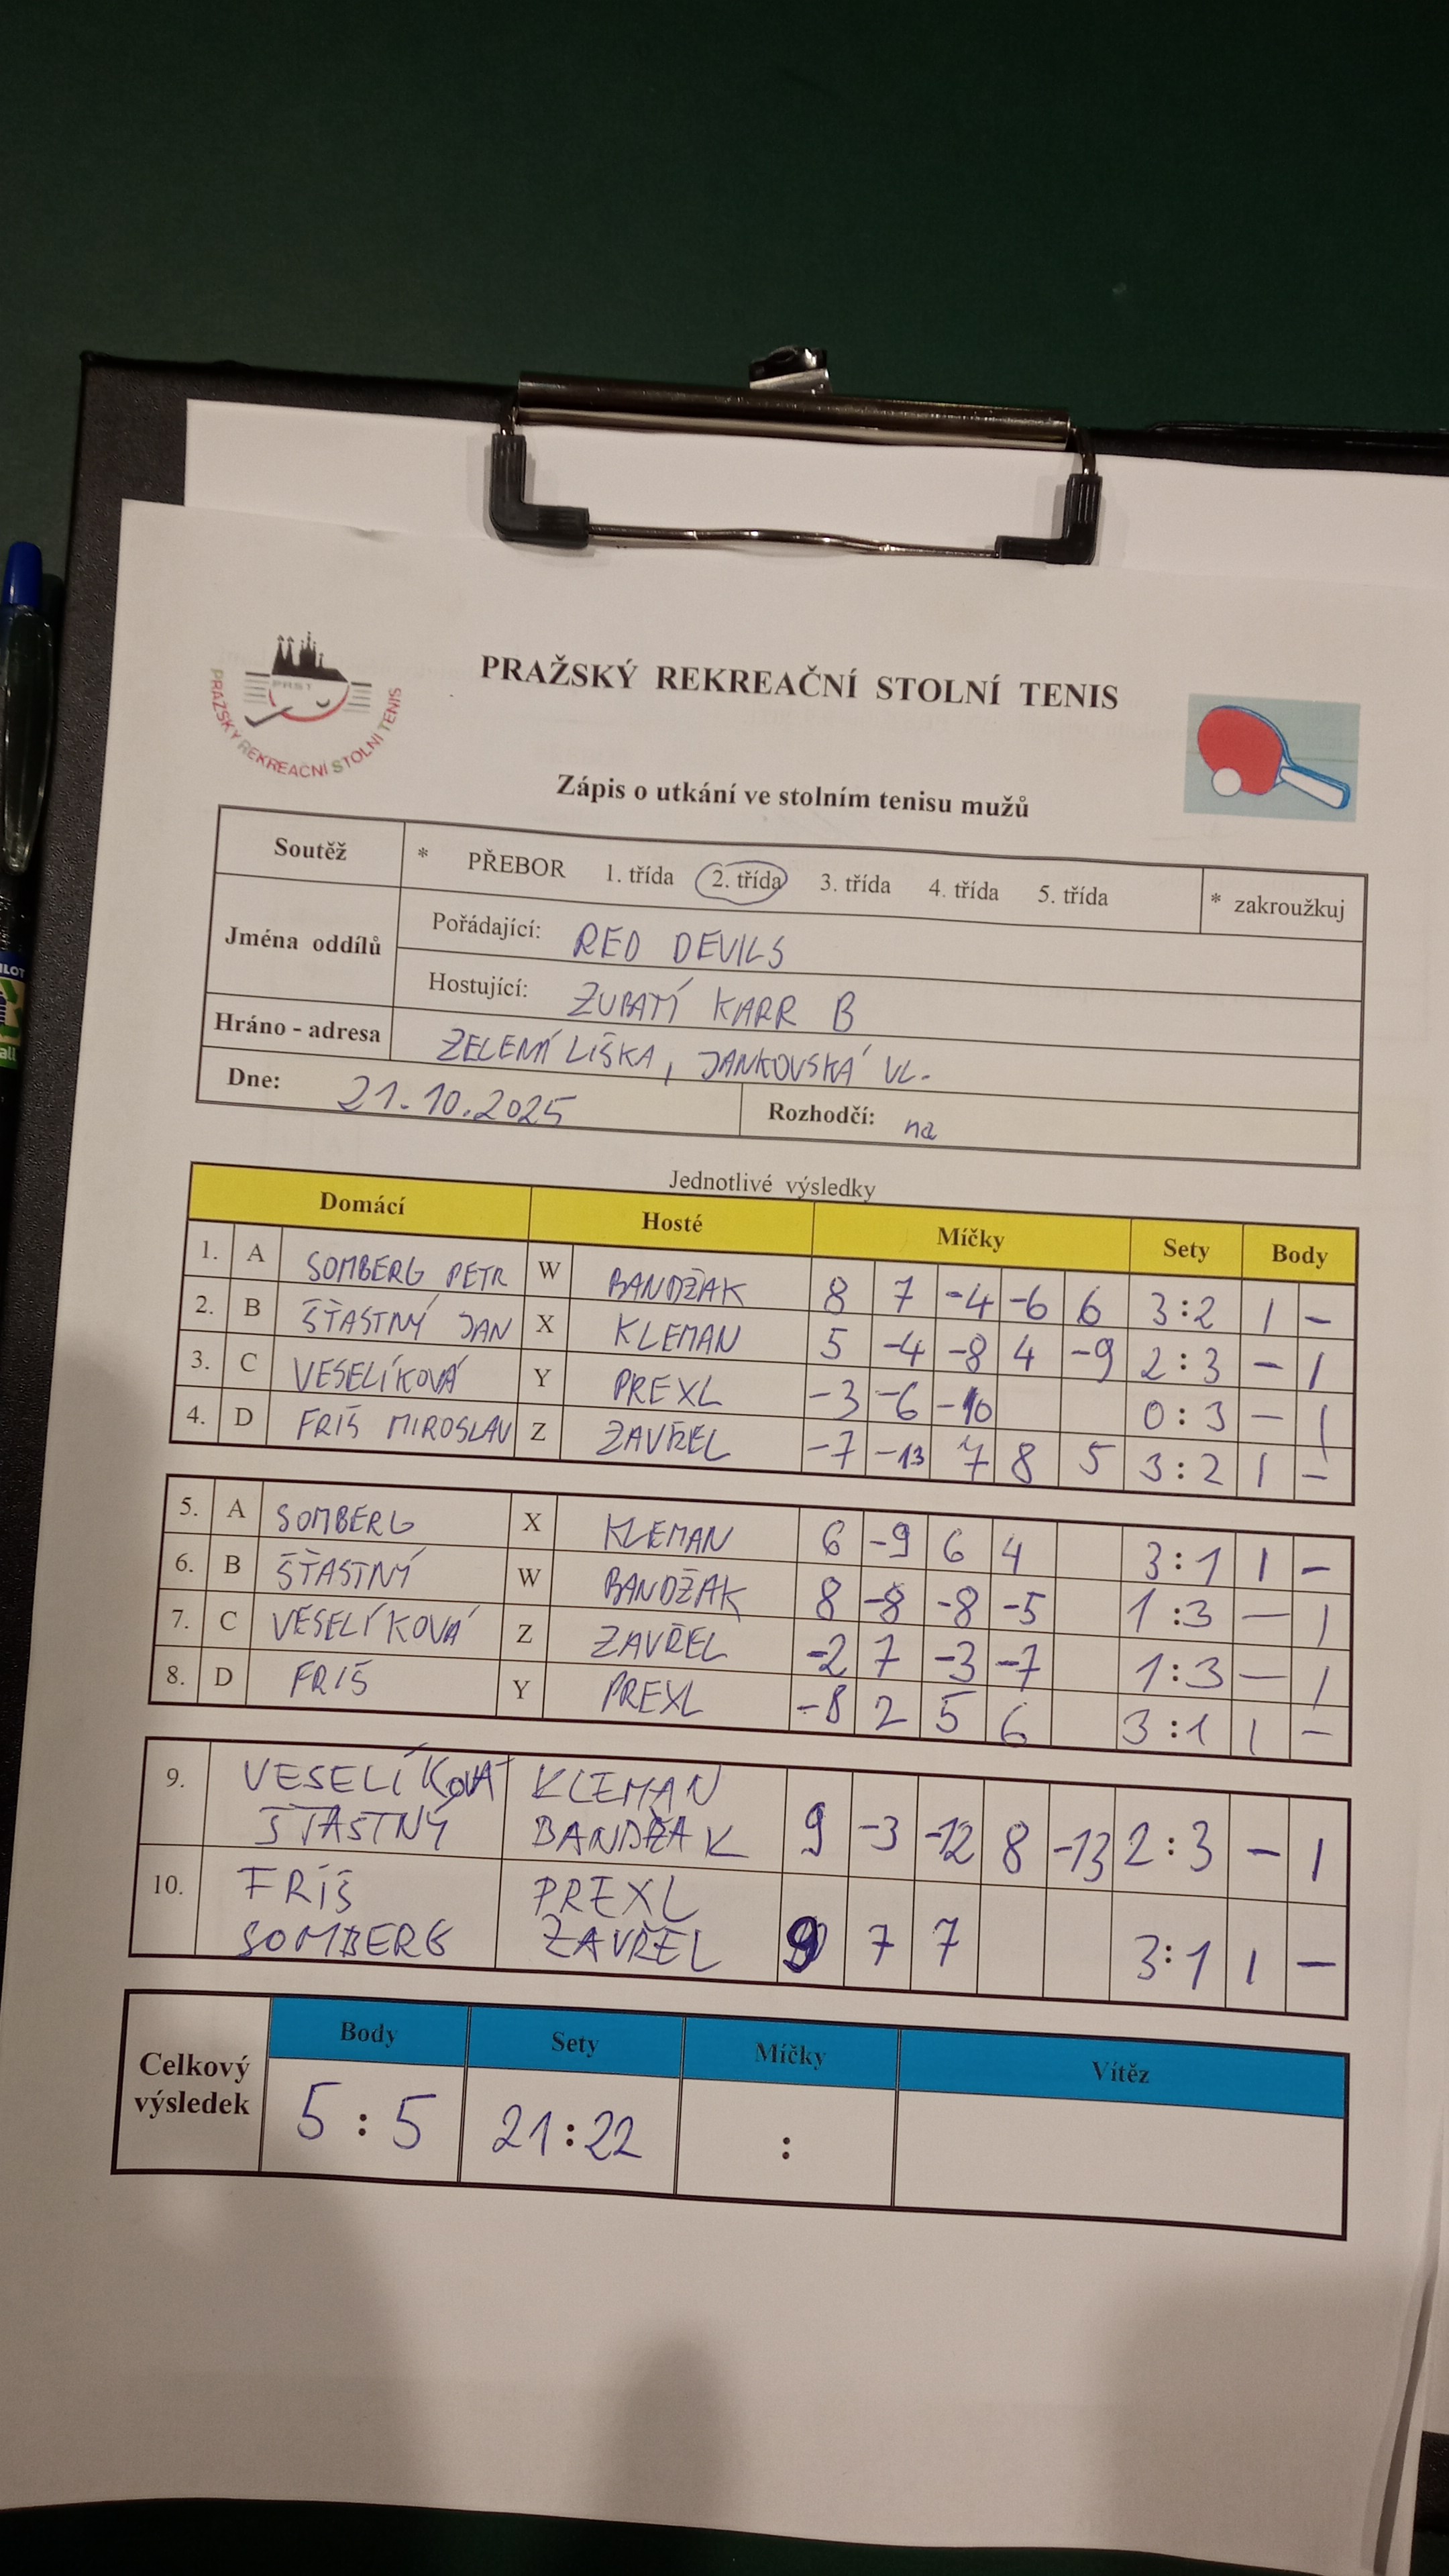 PRST
PRAŽSKÝ REKREAČNÍ STOLNÍ TENIS
PRAŽSKÝ REKREAČNÍ STOLNÍ TENIS
Zápis o utkání ve stolním tenisu mužů
Soutěž * PŘEBOR 1. třída 2. třída 3. třída 4. třída 5. třída * zakroužkuj
Jména oddílů
Pořádající: RED DEVILS
Hostující: ZUBATÍ KARR B
Hráno - adresa ZELENÁ LIŠKA, JANKOVSKÁ UL.
Dne: 21.10.2025 Rozhodčí: na
Jednotlivé výsledky
Domácí Hosté Míčky Sety Body
1. A SOMBERG PETR W BANDŽAK 8 7 -4 -6 6 3:2 1 -
2. B ŠŤASTNÝ JAN X KLEMAN 5 -4 -8 4 -9 2:3 - 1
3. C VESELÍKOVÁ Y PREXL -3 -6 -10 0:3 - 1
4. D FRIŠ MIROSLAV Z ZAVŘEL -7 -13 7 8 5 3:2 1 -
5. A SOMBERG X KLEMAN 6 -9 6 4 3:1 1 -
6. B ŠŤASTNÝ W BANDŽAK 8 -8 -8 -5 1:3 - 1
7. C VESELÍKOVÁ Z ZAVŘEL -2 7 -3 -7 1:3 - 1
8. D FRIŠ Y PREXL -8 2 5 6 3:1 1 -
9. VESELÍKOVÁ KLEMAN
ŠŤASTNÝ BANDŽAK 9 -3 -12 8 -13 2:3 - 1
10. FRIŠ PREXL
SOMBERG ZAVŘEL 9 7 7 3:1 1 -
Celkový výsledek
Body Sety Míčky Vítěz
5 : 5 21:22 :